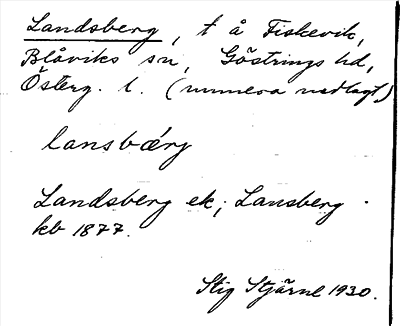 Landsberg, t å Fiskevik,
Blåviks sn, Göstrings hd,
Österg. l. (numera nedlagt)
lansbæ̀rg
Landsberg ek; Lansberg
kb 1877.
Stig Stjärne 1930.